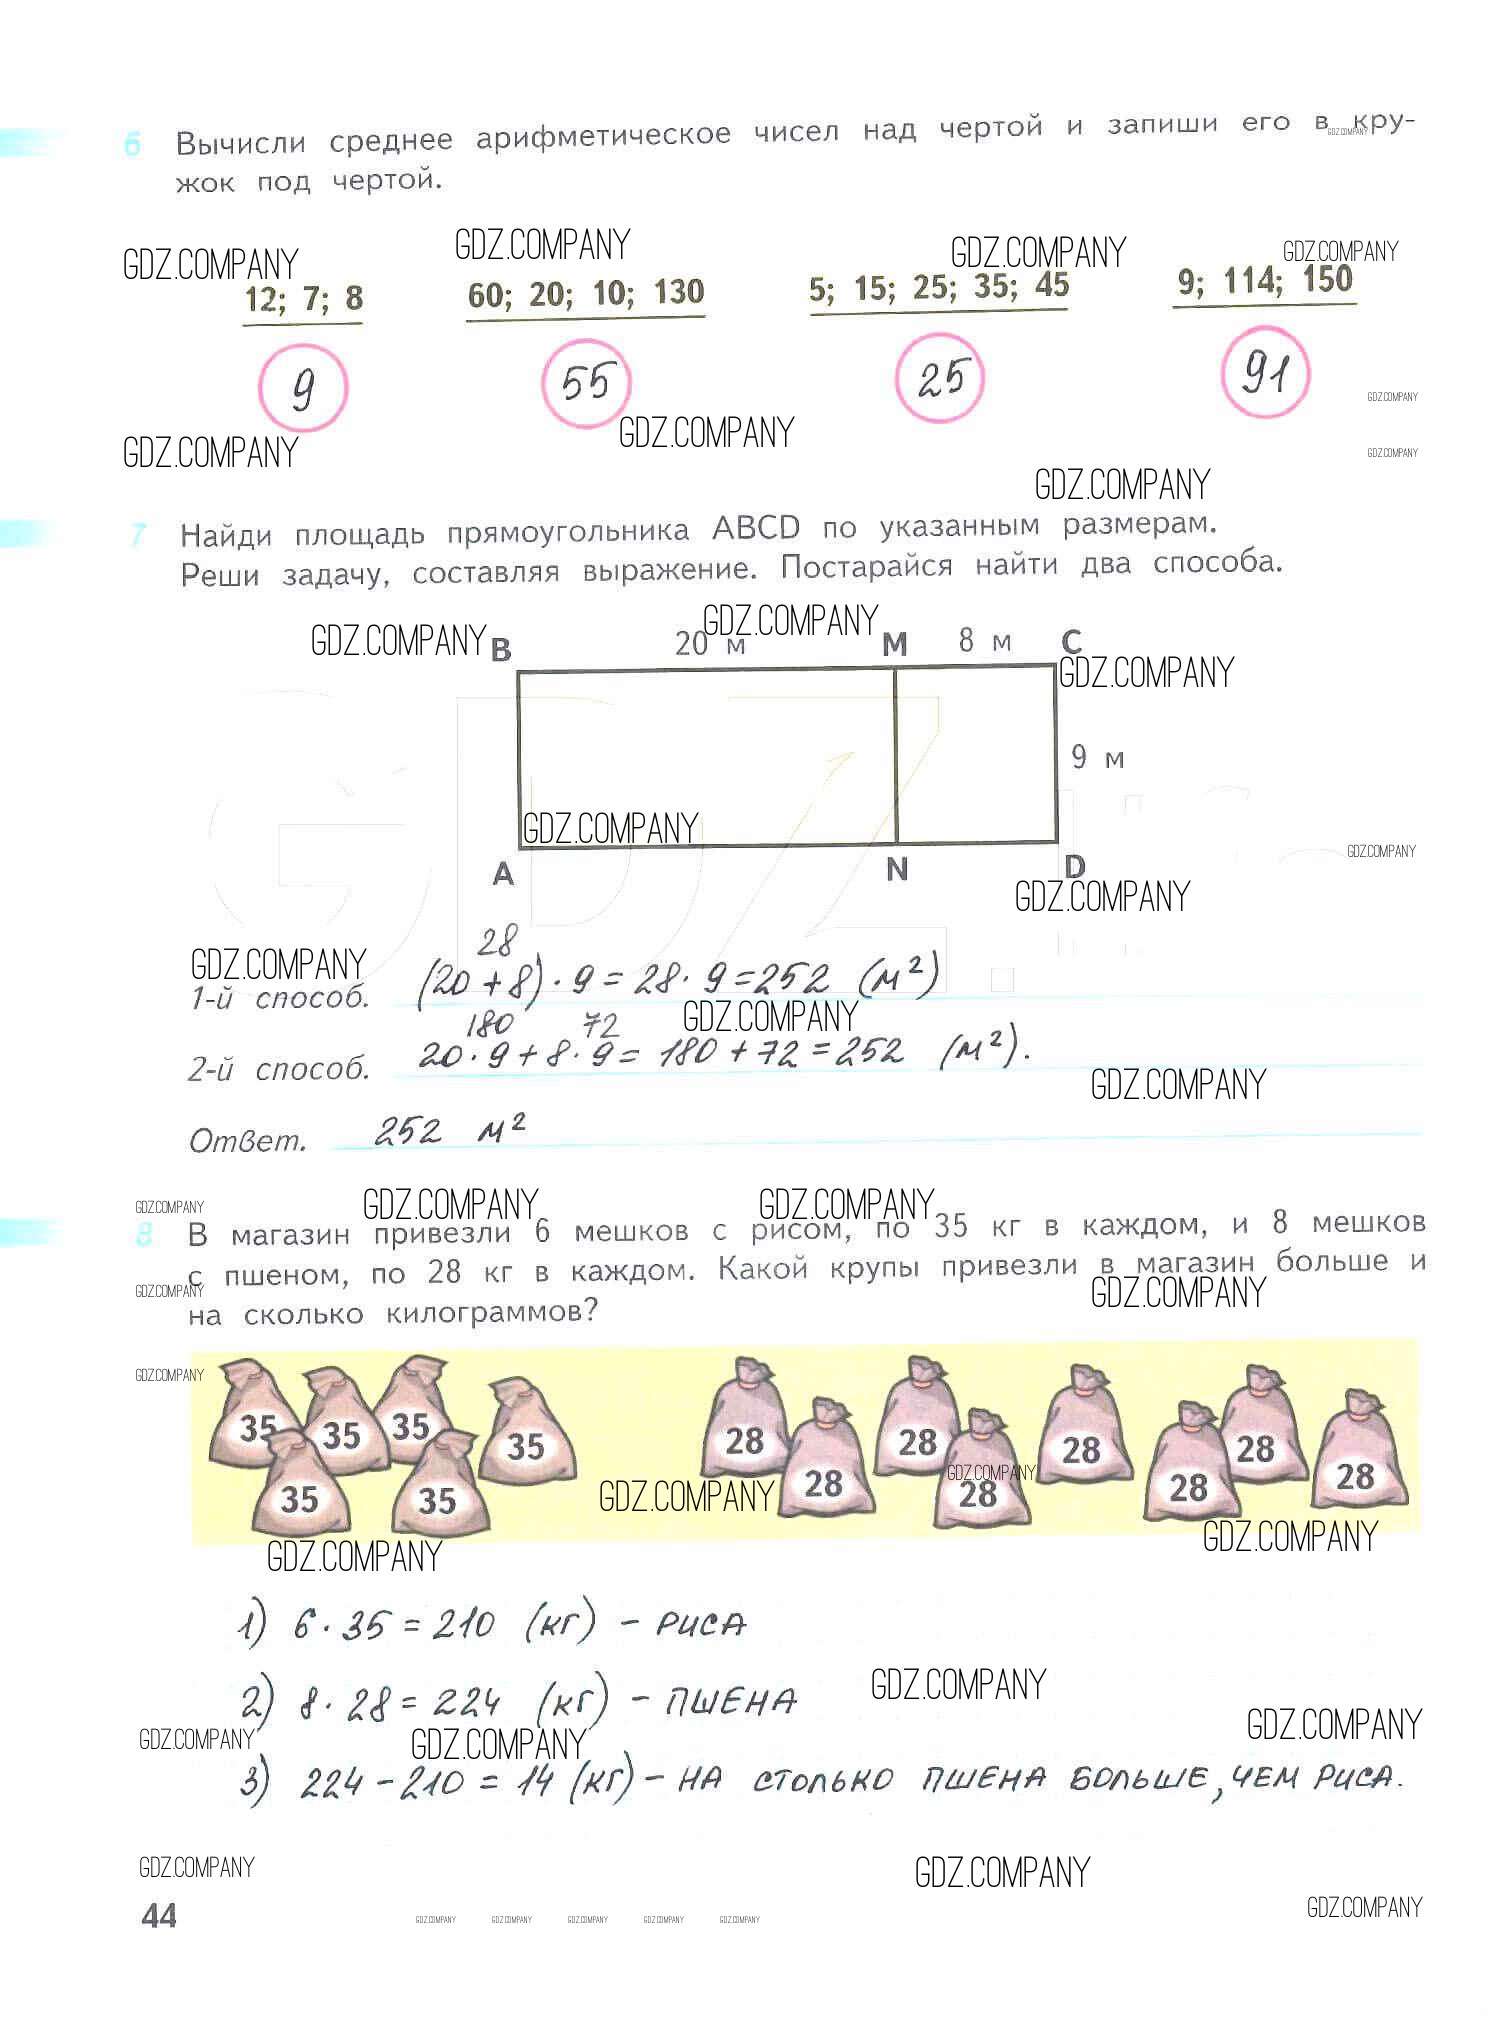 6 Вычисли среднее арифметическое чисел над чертой и запиши его в кру-
GDZ.COMPANY
жок под чертой.
GDZ.COMPANY GDZ.COMPANY GDZ.COMPANY GDZ.COMPANY
12; 7; 8 60; 20; 10; 130 5; 15; 25; 35; 45 9; 114; 150
9 55 25 91
GDZ.COMPANY
GDZ.COMPANY GDZ.COMPANY GDZ.COMPANY
GDZ.COMPANY
7 Найди площадь прямоугольника ABCD по указанным размерам.
Реши задачу, составляя выражение. Постарайся найти два способа.
GDZ.COMPANY GDZ.COMPANY
B 20 м M 8 м C
GDZ.COMPANY
9 м
GDZ.COMPANY GDZ.COMPANY
A N D
GDZ.COMPANY
28
GDZ.COMPANY
1-й способ. (20 + 8) · 9 = 28 · 9 = 252 (м²)
GDZ.COMPANY
180 72
2-й способ. 20 · 9 + 8 · 9 = 180 + 72 = 252 (м²).
GDZ.COMPANY
Ответ. 252 м²
GDZ.COMPANY GDZ.COMPANY GDZ.COMPANY
8 В магазин привезли 6 мешков с рисом, по 35 кг в каждом, и 8 мешков
с пшеном, по 28 кг в каждом. Какой крупы привезли в магазин больше и
GDZ.COMPANY GDZ.COMPANY
на сколько килограммов?
GDZ.COMPANY
35 35 35 35 28 28 28 28
35 35 28 28 28 28
GDZ.COMPANY GDZ.COMPANY
GDZ.COMPANY GDZ.COMPANY
1) 6 · 35 = 210 (кг) – РИСА
GDZ.COMPANY
2) 8 · 28 = 224 (кг) – ПШЕНА
GDZ.COMPANY GDZ.COMPANY GDZ.COMPANY
3) 224 – 210 = 14 (кг) – НА СТОЛЬКО ПШЕНА БОЛЬШЕ, ЧЕМ РИСА.
GDZ.COMPANY GDZ.COMPANY
44
GDZ.COMPANY GDZ.COMPANY GDZ.COMPANY GDZ.COMPANY GDZ.COMPANY GDZ.COMPANY